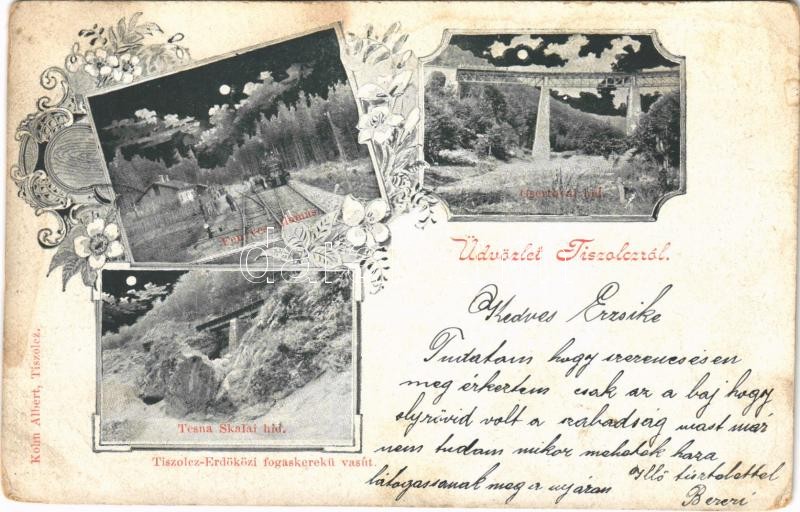 Fenyves állomás.
Csertövai hid.
Üdvözlet Tiszolczról.
Tesna Skalai hid.
Tiszolcz-Erdöközi fogaskerekü vasút.
Kohn Albert, Tiszolcz.
Kedves Erzsike
Tudatom hogy szerencsésen
meg érkertem csak az a baj hogy
olyrövid volt a szabadság mast már
nem tudam mikor mehetek haza
látogassanak meg a nyáran
Illő tisztelettel